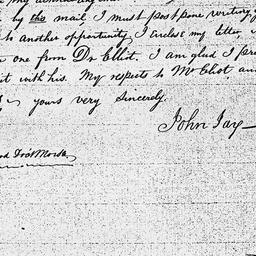 by this mail I must postpone writing
to another opportunity, I inclose my letter,
one from Dr Elliot. I am glad I
it with his. My respects to Mr Eliot and
yours very sincerely.
John Jay